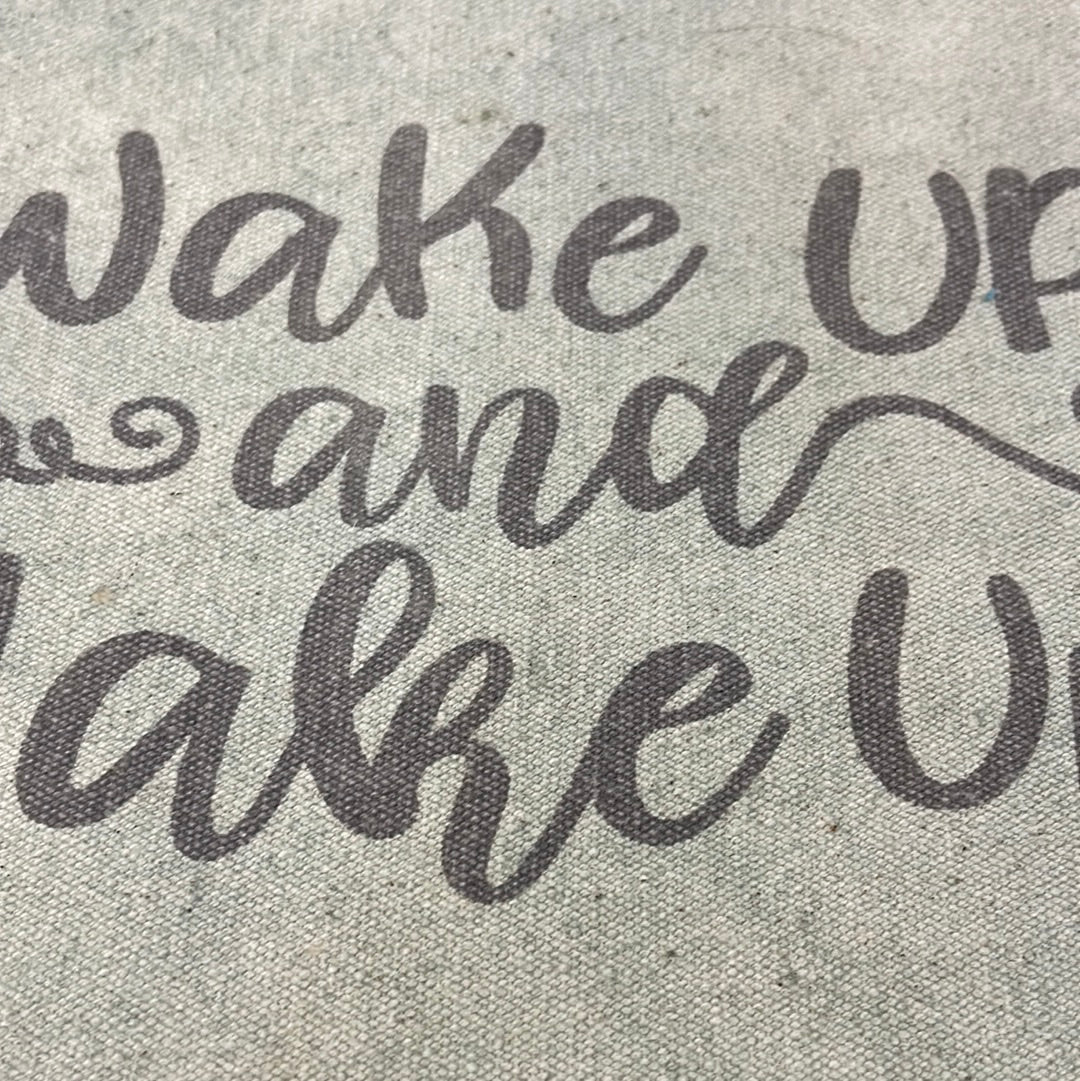 Wake UP
and
ake U